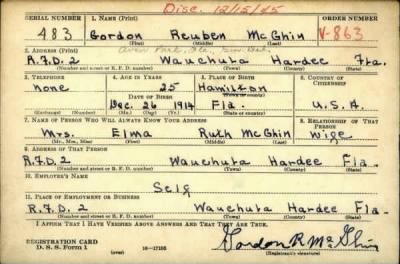 Disc. 12/15/45
SERIAL NUMBER 1. NAME (Print) ORDER NUMBER
483 Gordon Reuben McGhin V-863
(First) (Middle) (Last)
2. ADDRESS (Print)
R.F.D. 2 Wauchula Hardee Fla.
(Number and street or R. F. D. number) (Town) (County) (State)
3. TELEPHONE 4. AGE IN YEARS 5. PLACE OF BIRTH 6. COUNTRY OF CITIZENSHIP
none 25 Hamilton
DATE OF BIRTH (Town or county)
Dec. 26 1914 Fla. U.S.A.
(Exchange) (Number) (Mo.) (Day) (Yr.) (State or country)
7. NAME OF PERSON WHO WILL ALWAYS KNOW YOUR ADDRESS 8. RELATIONSHIP OF THAT PERSON
Mrs. Elma Ruth McGhin Wife
(Mr., Mrs., Miss) (First) (Middle) (Last)
9. ADDRESS OF THAT PERSON
R.F.D. 2 Wauchula Hardee Fla.
(Number and street or R. F. D. number) (Town) (County) (State)
10. EMPLOYER'S NAME
Self
11. PLACE OF EMPLOYMENT OR BUSINESS
R.F.D. 2 Wauchula Hardee Fla.
(Number and street or R. F. D. number) (Town) (County) (State)
I AFFIRM THAT I HAVE VERIFIED ABOVE ANSWERS AND THAT THEY ARE TRUE.
REGISTRATION CARD
D. S. S. Form 1 (over) 16-17105
Gordon R McGhin
(Registrant's signature)